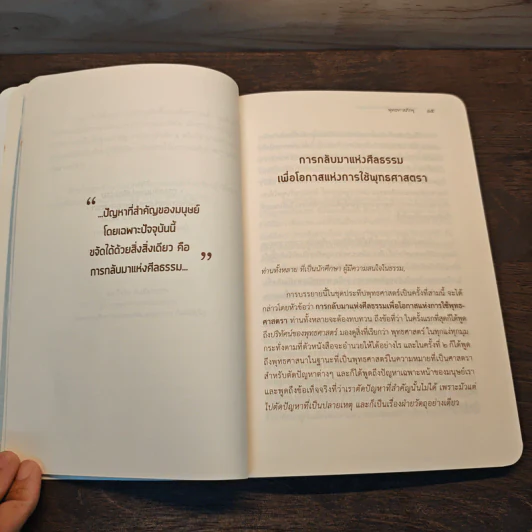 “
...ปัญหาที่สำคัญของมนุษย์
โดยเฉพาะปัจจุบันนี้
ขจัดได้ด้วยสิ่งสิ่งเดียว คือ
การกลับมาแห่งศีลธรรม...
”
การกลับมาแห่งศีลธรรม
เพื่อโอกาสแห่งการใช้พุทธศาสตรา
ท่านทั้งหลาย ที่เป็นนักศึกษา ผู้มีความสนใจในธรรม,
การบรรยายนี้ในชุดประทีปพุทธศาสตร์เป็นครั้งที่สามนี้ จะได้
กล่าวโดยหัวข้อว่า การกลับมาแห่งศีลธรรมเพื่อโอกาสแห่งการใช้พุทธ-
ศาสตรา ท่านทั้งหลายจะต้องทบทวน ถึงข้อที่ว่า ในครั้งแรกที่สุดก็ได้พูด
ถึงปริทัศน์ของพุทธศาสตร์ มองดูสิ่งที่เรียกว่า พุทธศาสตร์ ในทุกแง่ทุกมุม
กระทั่งตามที่ตัวหนังสือจะอำนวยให้ได้อย่างไร และในครั้งที่ ๒ ก็ได้พูด
ถึงพุทธศาสนาในฐานะที่เป็นพุทธศาสตร์ในความหมายที่เป็นศาสตรา
สำหรับตัดปัญหาต่างๆ และก็ได้พูดถึงปัญหาเฉพาะหน้าของมนุษย์เรา
และพูดถึงข้อเท็จจริงที่ว่าเราตัดปัญหาที่สำคัญนั้นไม่ได้ เพราะมัวแต่
ไปตัดปัญหาที่เป็นปลายเหตุ และก็เป็นเรื่องฝ่ายวัตถุอย่างเดียว